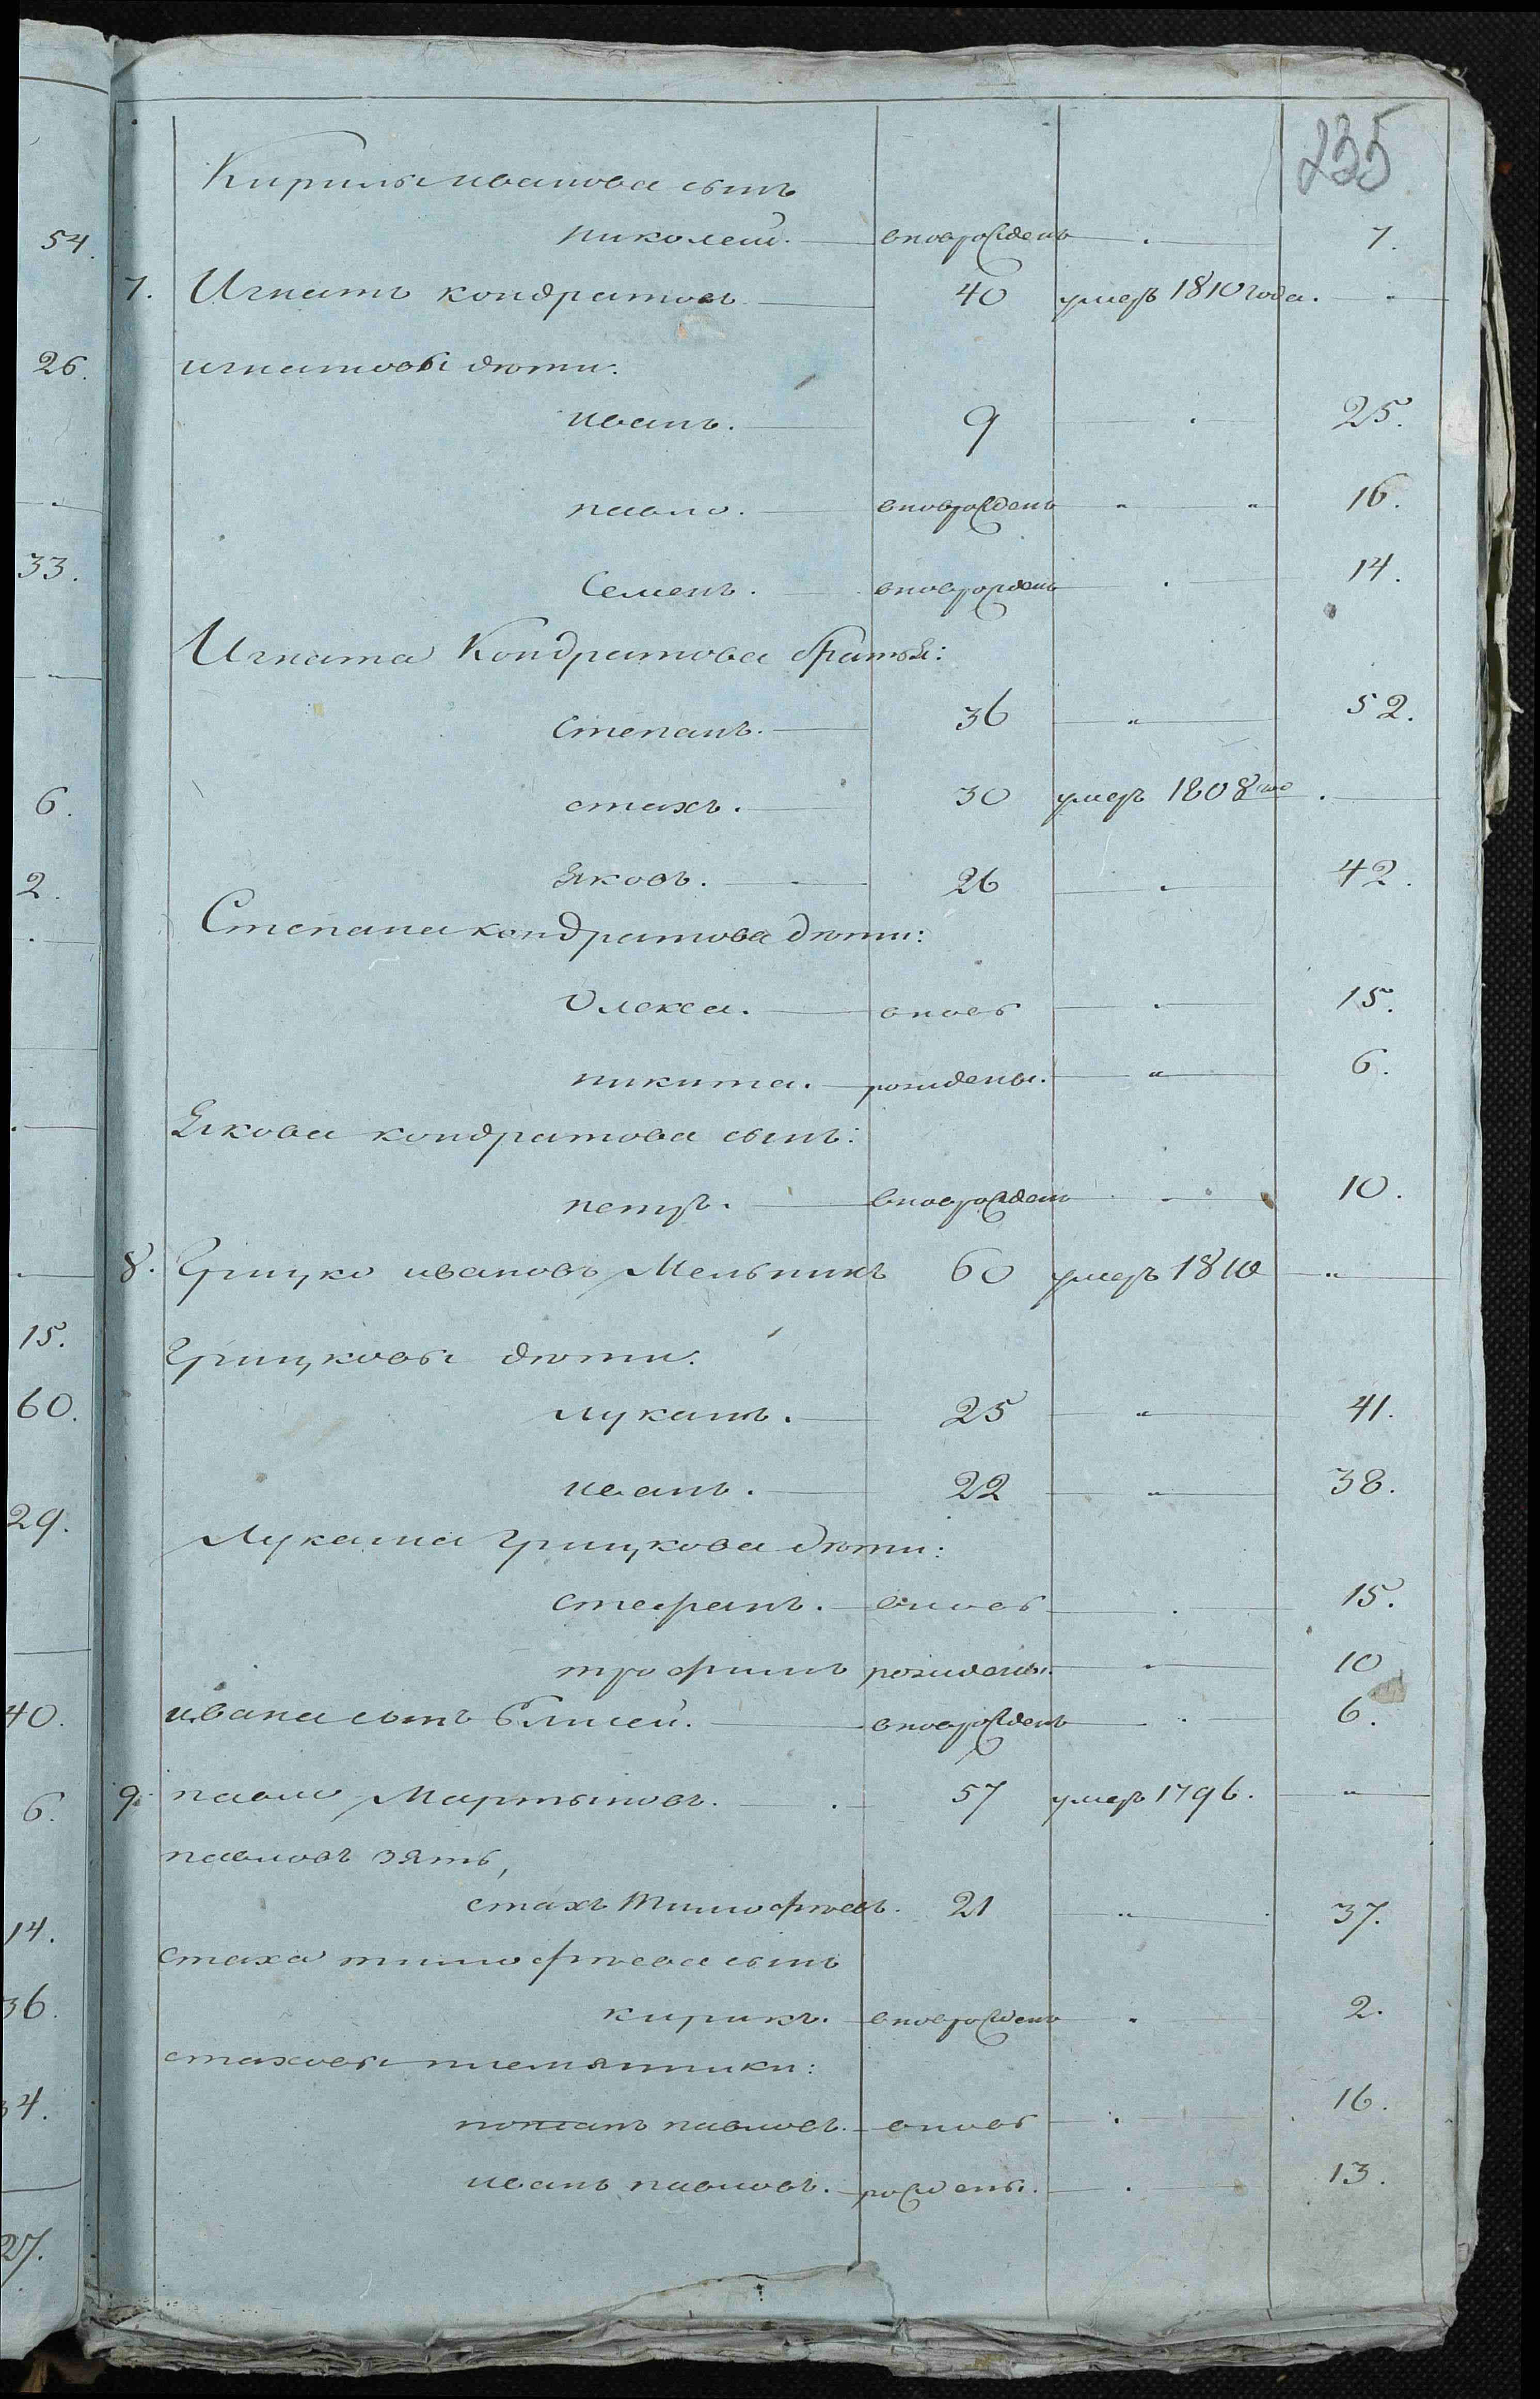 235
Кирилы иванова сынъ
николай. вноврожденъ 7.
7. Игнатъ кондратовъ 40 умеръ 1810 года.
игнатовы дѣти:
иванъ. 9 25.
павло. вноврожденъ 16.
Семенъ. вноврожденъ 14.
Игната Кондратова братья:
Степанъ. 36 52.
стахъ. 30 умеръ 1808 го
Яковъ. 26 42.
Степана кондратова дѣти:
Олекса. вновь 15.
никита. рождены. 6.
Якова кондратова сынъ:
петръ. вноврожденъ 10.
8. Грицко ивановъ Мельникъ 60 умеръ 1810
Грицковы дѣти:
лукашъ. 25 41.
иванъ. 22 38.
Лукаша Грицкова дѣти:
стефанъ. вновь 15.
трофимъ рождены. 10
ивана сынъ Елисей. вноврожденъ 6.
9. павло Мартыновъ. 57 умеръ 1796.
павловъ зять,
стахъ Тимофѣевъ. 21 37.
стаха тимофѣева сынъ
кирикъ. вноврожденъ 2.
стаховы племянники:
павловъ. вновь 16.
иванъ павловъ. рождены. 13.
54.
26.
33.
6.
2.
15.
60.
29.
40.
6.
14.
36.
34.
27.